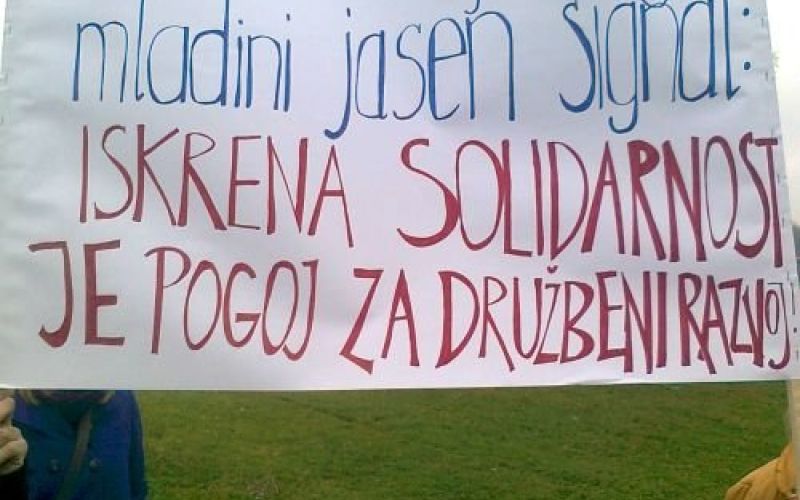 mladini jasen signal:
ISKRENA SOLIDARNOST
JE POGOJ ZA DRUŽBENI RAZVOJ!